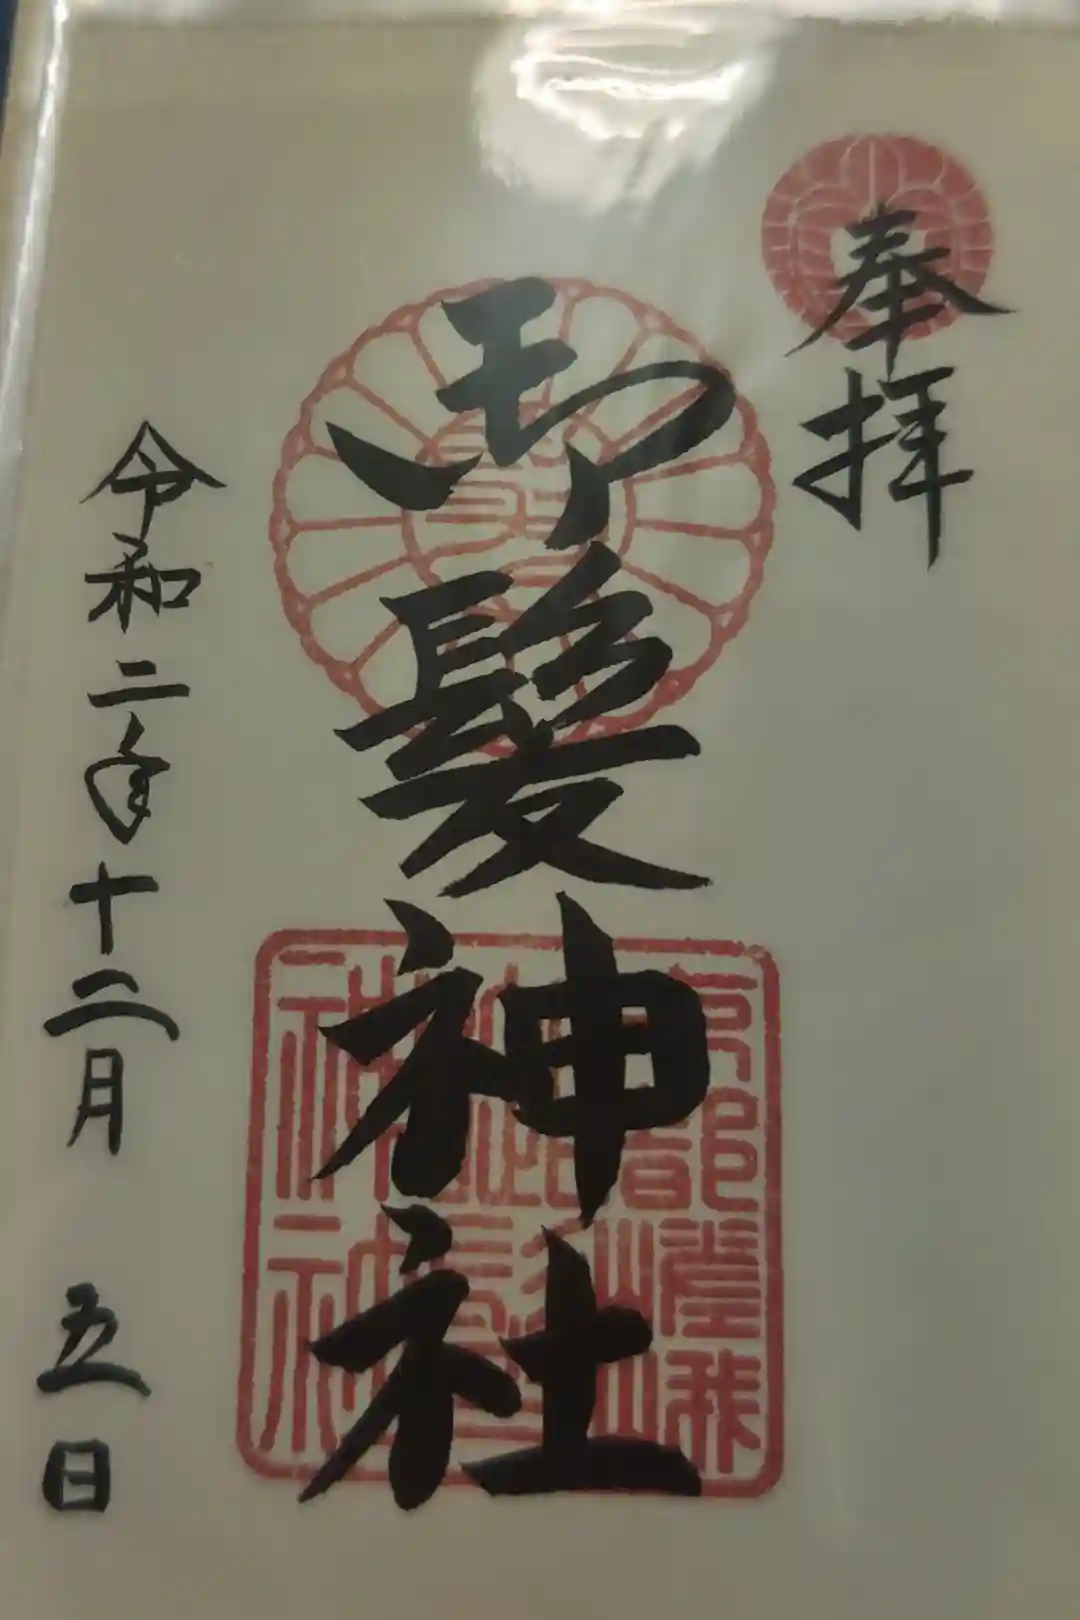 奉拝
御髪神社
令和二年十二月 五日